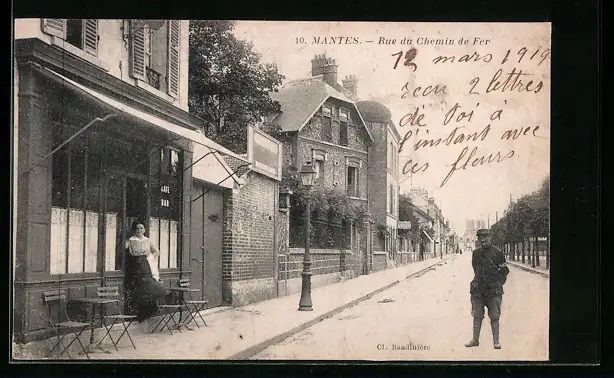 10. MANTES. - Rue du Chemin de Fer
12 mars 1919
recu 2 lettres
de toi à
l'instant avec
ces fleurs
CAFÉ
BAR
Cl. Baudinière